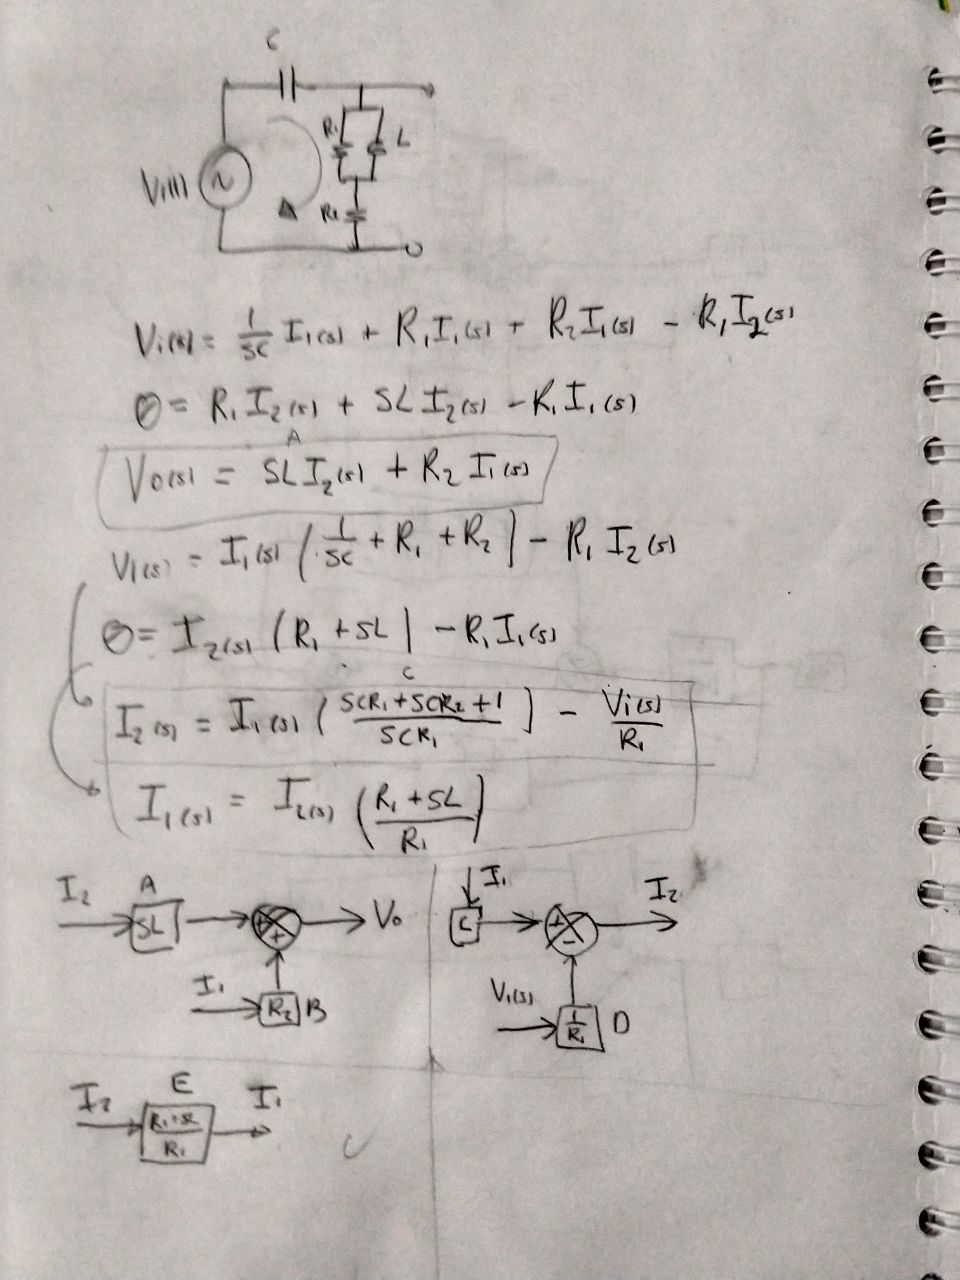 C
R₁ L
Vi(t)
R₂
Vi(s) = 1/SC I₁(s) + R₁I₁(s) + R₂I₁(s) - R₁I₂(s)
0 = R₁I₂(s) + SL I₂(s) - R₁I₁(s)
A
Vo(s) = SLI₂(s) + R₂ I₁(s)
Vi(s) = I₁(s) (1/SC + R₁ + R₂) - R₁ I₂(s)
0 = I₂(s) (R₁ + SL) - R₁I₁(s)
C
I₂(s) = I₁(s) (SCR₁+SCR₂+1/SCR₁) - Vi(s)/R₁
I₁(s) = I₂(s) (R₁+SL/R₁)
I₂ A SL + + Vo
I₁ R₂ B
I₁ C + - I₂
Vi(s) 1/R₁ D
I₂ E R₁+SL/R₁ I₁